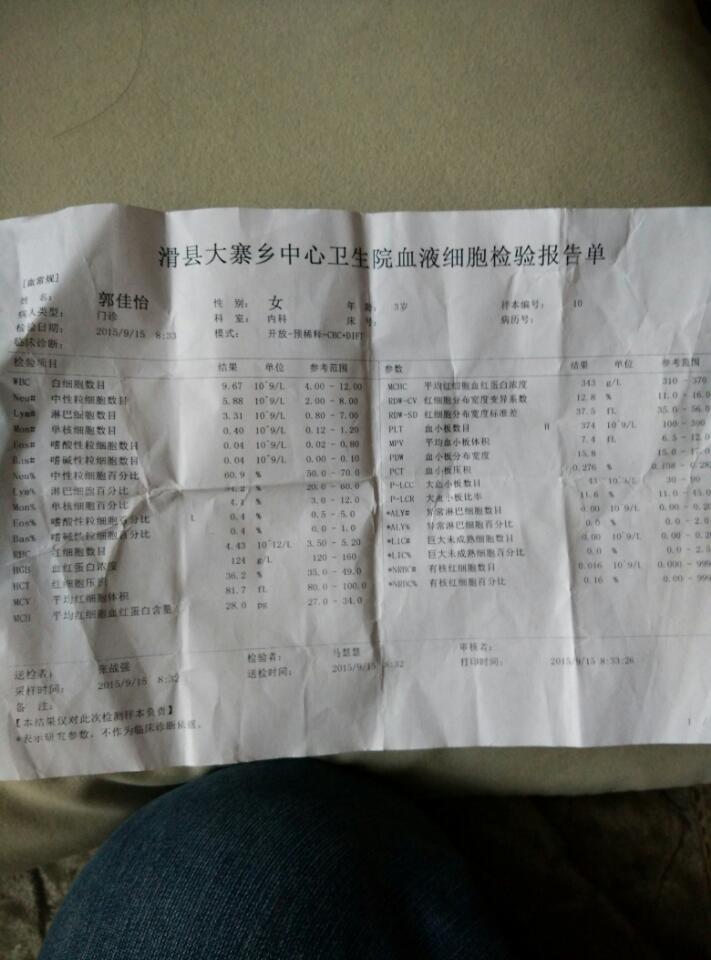 滑县大寨乡中心卫生院血液细胞检验报告单
[血常规]
姓 名： 郭佳怡 性 别： 女 年 龄： 3岁 样本编号： 10
病人类型： 门诊 科 室： 内科 床 号： 病历号：
检验日期： 2015/9/15 8:33 模式： 开放-预稀释-CBC+DIFF
临床诊断：
检验项目 结果 单位 参考范围 参数 结果 单位 参考范围
WBC 白细胞数目 9.67 10^9/L 4.00 - 12.00 MCHC 平均红细胞血红蛋白浓度 343 g/L 310 - 370
Neu# 中性粒细胞数目 5.88 10^9/L 2.00 - 8.00 RDW-CV 红细胞分布宽度变异系数 12.8 % 11.0 - 16.0
Lym# 淋巴细胞数目 3.31 10^9/L 0.80 - 7.00 RDW-SD 红细胞分布宽度标准差 37.5 fL 35.0 - 56.0
Mon# 单核细胞数目 0.40 10^9/L 0.12 - 1.20 PLT 血小板数目 H 374 10^9/L 100 - 300
Eos# 嗜酸性粒细胞数目 0.04 10^9/L 0.02 - 0.80 MPV 平均血小板体积 7.4 fL 6.5 - 12.0
Bas# 嗜碱性粒细胞数目 0.04 10^9/L 0.00 - 0.10 PDW 血小板分布宽度 15.8 15.0 - 17.0
Neu% 中性粒细胞百分比 60.9 % 50.0 - 70.0 PCT 血小板压积 0.276 % 0.108 - 0.282
Lym% 淋巴细胞百分比 34.2 % 20.0 - 60.0 P-LCC 大血小板数目 43 10^9/L 30 - 90
Mon% 单核细胞百分比 4.1 % 3.0 - 12.0 P-LCR 大血小板比率 11.6 % 11.0 - 45.0
Eos% 嗜酸性粒细胞百分比 L 0.4 % 0.5 - 5.0 *ALY# 异常淋巴细胞数目 0.00 10^9/L 0.00 - 0.20
Bas% 嗜碱性粒细胞百分比 0.4 % 0.0 - 1.0 *ALY% 异常淋巴细胞百分比 0.0 % 0.0 - 2.0
RBC 红细胞数目 4.43 10^12/L 3.50 - 5.20 *LIC# 巨大未成熟细胞数目 0.00 10^9/L 0.00 - 0.20
HGB 血红蛋白浓度 124 g/L 120 - 160 *LIC% 巨大未成熟细胞百分比 0.0 % 0.0 - 2.5
HCT 红细胞压积 36.2 % 35.0 - 49.0 *NRBC# 有核红细胞数目 0.016 10^9/L 0.000 -
MCV 平均红细胞体积 81.7 fL 80.0 - 100.0 *NRBC% 有核红细胞百分比 0.16 % 0.00 -
MCH 平均红细胞血红蛋白含量 28.0 pg 27.0 - 34.0
送检者： 张战强 检验者： 马慧慧 审核者：
采样时间： 2015/9/15 8:32 送检时间： 2015/9/15 8:32 打印时间： 2015/9/15 8:33:26
备 注：
【本结果仅对此次检测样本负责】
*表示研究参数，不作为临床诊断依据。
1